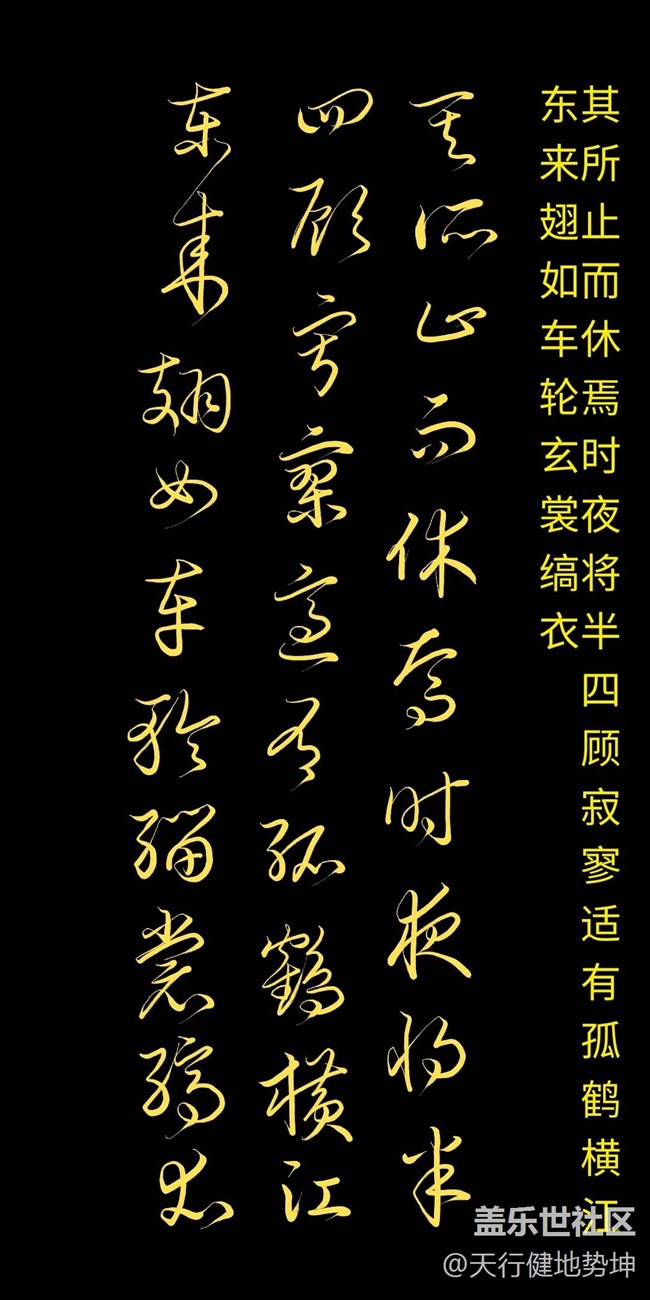 其所止而休焉时夜将半四顾寂寥适有孤鹤横江
东来翅如车轮玄裳缟衣
其所止而休焉时夜将半
四顾寂寥适有孤鹤横江
东来翅如车轮缁裳缟衣
盖乐世社区
@天行健地势坤